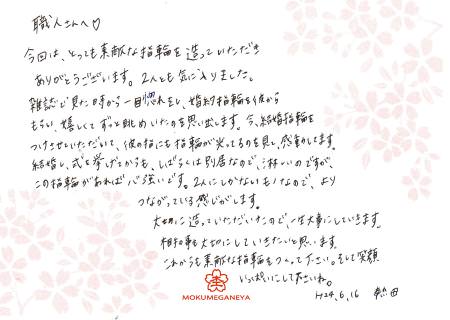 職人さんへ♡
今回は、とっても素敵な指輪を造っていただき
ありがとうございます。2人とも気に入りました。
雑誌で見た時から一目惚れをし、婚約指輪を彼から
もらい、嬉しくてずっと眺めていたのを思い出します。今、結婚指輪を
つけさせていただいて、彼の指にも指輪が光ってるのを見て、感動してます。
結婚し、式を挙げてからも、しばらくは別居なので、淋しいのですが、
この指輪があれば心強いです。2人にしかないモノなので、より
つながっている感じがします。
大切に造っていただいたので、一生大事にしていきます。
相手も大切にしていきたいと思います。
これからも素敵な指輪をつくって下さい。そして笑顔
いっぱいにして下さいね。
H24.6.16
MOKUMEGANEYA